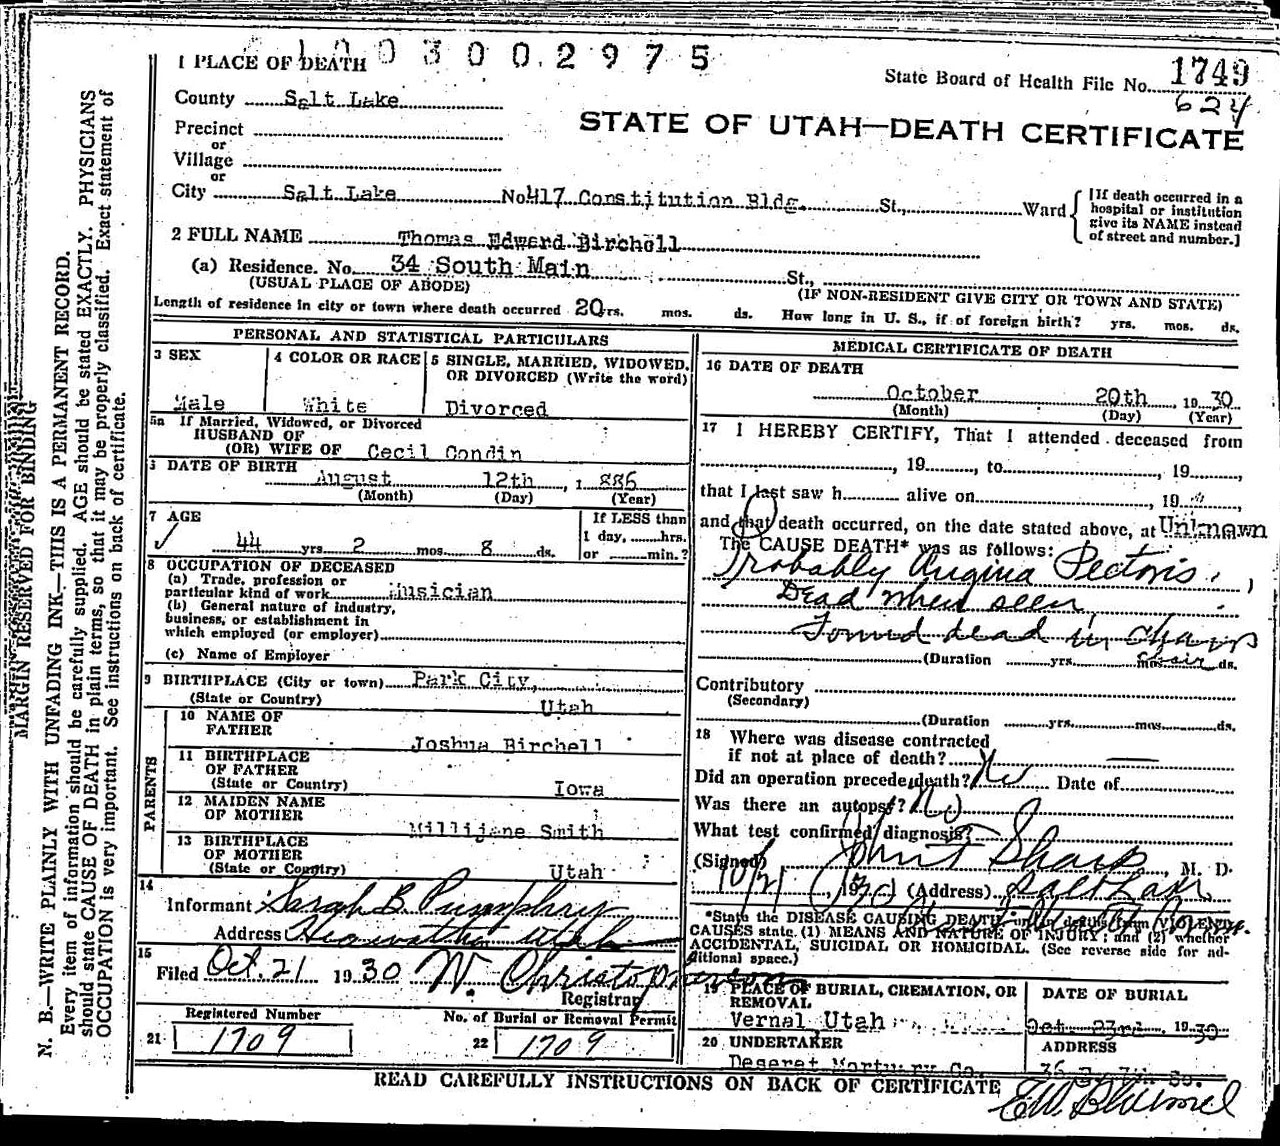 1003002975
1 PLACE OF DEATH
State Board of Health File No. 1749
624
County Salt Lake
STATE OF UTAH—DEATH CERTIFICATE
Precinct
or
Village
or
City Salt Lake No. 417 Constitution Bldg. St., Ward
[If death occurred in a
hospital or institution
give its NAME instead
of street and number.]
2 FULL NAME Thomas Edward Birchell
(a) Residence. No. 34 South Main St.,
(USUAL PLACE OF ABODE) (IF NON-RESIDENT GIVE CITY OR TOWN AND STATE)
Length of residence in city or town where death occurred 20 yrs. mos. ds. How long in U. S., if of foreign birth? yrs. mos. ds.
PERSONAL AND STATISTICAL PARTICULARS
3 SEX
Male
4 COLOR OR RACE
White
5 SINGLE, MARRIED, WIDOWED,
OR DIVORCED (Write the word)
Divorced
5a If Married, Widowed, or Divorced
HUSBAND OF
(OR) WIFE OF Cecil Condin
6 DATE OF BIRTH
August 12th, 1886
(Month) (Day) (Year)
7 AGE
44 yrs. 2 mos. 8 ds.
If LESS than
1 day, hrs.
or min.?
8 OCCUPATION OF DECEASED
(a) Trade, profession or
particular kind of work Musician
(b) General nature of industry,
business, or establishment in
which employed (or employer)
(c) Name of Employer
9 BIRTHPLACE (City or town) Park City,
(State or Country) Utah
PARENTS
10 NAME OF
FATHER Joshua Birchell
11 BIRTHPLACE
OF FATHER
(State or Country) Iowa
12 MAIDEN NAME
OF MOTHER Millijane Smith
13 BIRTHPLACE
OF MOTHER
(State or Country) Utah
14
Informant Sarah B. Pumphrey
Address Hiawatha Utah
15
Filed Oct. 21 1930 W. Christopherson
Registrar
Registered Number
21 1709
No. of Burial or Removal Permit
22 1709
MEDICAL CERTIFICATE OF DEATH
16 DATE OF DEATH
October 20th, 1930
(Month) (Day) (Year)
17 I HEREBY CERTIFY, That I attended deceased from
, 19 , to , 19
that I last saw h alive on , 19
and that death occurred, on the date stated above, at Unknown
The CAUSE DEATH* was as follows:
Probably Angina Pectoris,
Dead when seen
Found dead in chair
(Duration yrs. mos. ds.
Contributory
(Secondary)
(Duration yrs. mos. ds.
18 Where was disease contracted
if not at place of death? —
Did an operation precede death? No Date of
Was there an autopsy? No
What test confirmed diagnosis?
(Signed) John T Sharp, M. D.
10/21 1930 (Address) Salt Lake
*State the DISEASE CAUSING DEATH, or in deaths from VIOLENT
CAUSES state (1) MEANS AND NATURE OF INJURY; and (2) whether
ACCIDENTAL, SUICIDAL OR HOMICIDAL. (See reverse side for ad-
ditional space.)
19 PLACE OF BURIAL, CREMATION, OR
REMOVAL
Vernal Utah
DATE OF BURIAL
Oct. 23rd, 1930
20 UNDERTAKER
Deseret Mortuary Co.
ADDRESS
36 So.
READ CAREFULLY INSTRUCTIONS ON BACK OF CERTIFICATE
E.W. Blumel
MARGIN RESERVED FOR BINDING
N. B.—WRITE PLAINLY WITH UNFADING INK—THIS IS A PERMANENT RECORD.
Every item of information should be carefully supplied. AGE should be stated EXACTLY. PHYSICIANS
should state CAUSE OF DEATH in plain terms, so that it may be properly classified. Exact statement of
OCCUPATION is very important. See instructions on back of certificate.